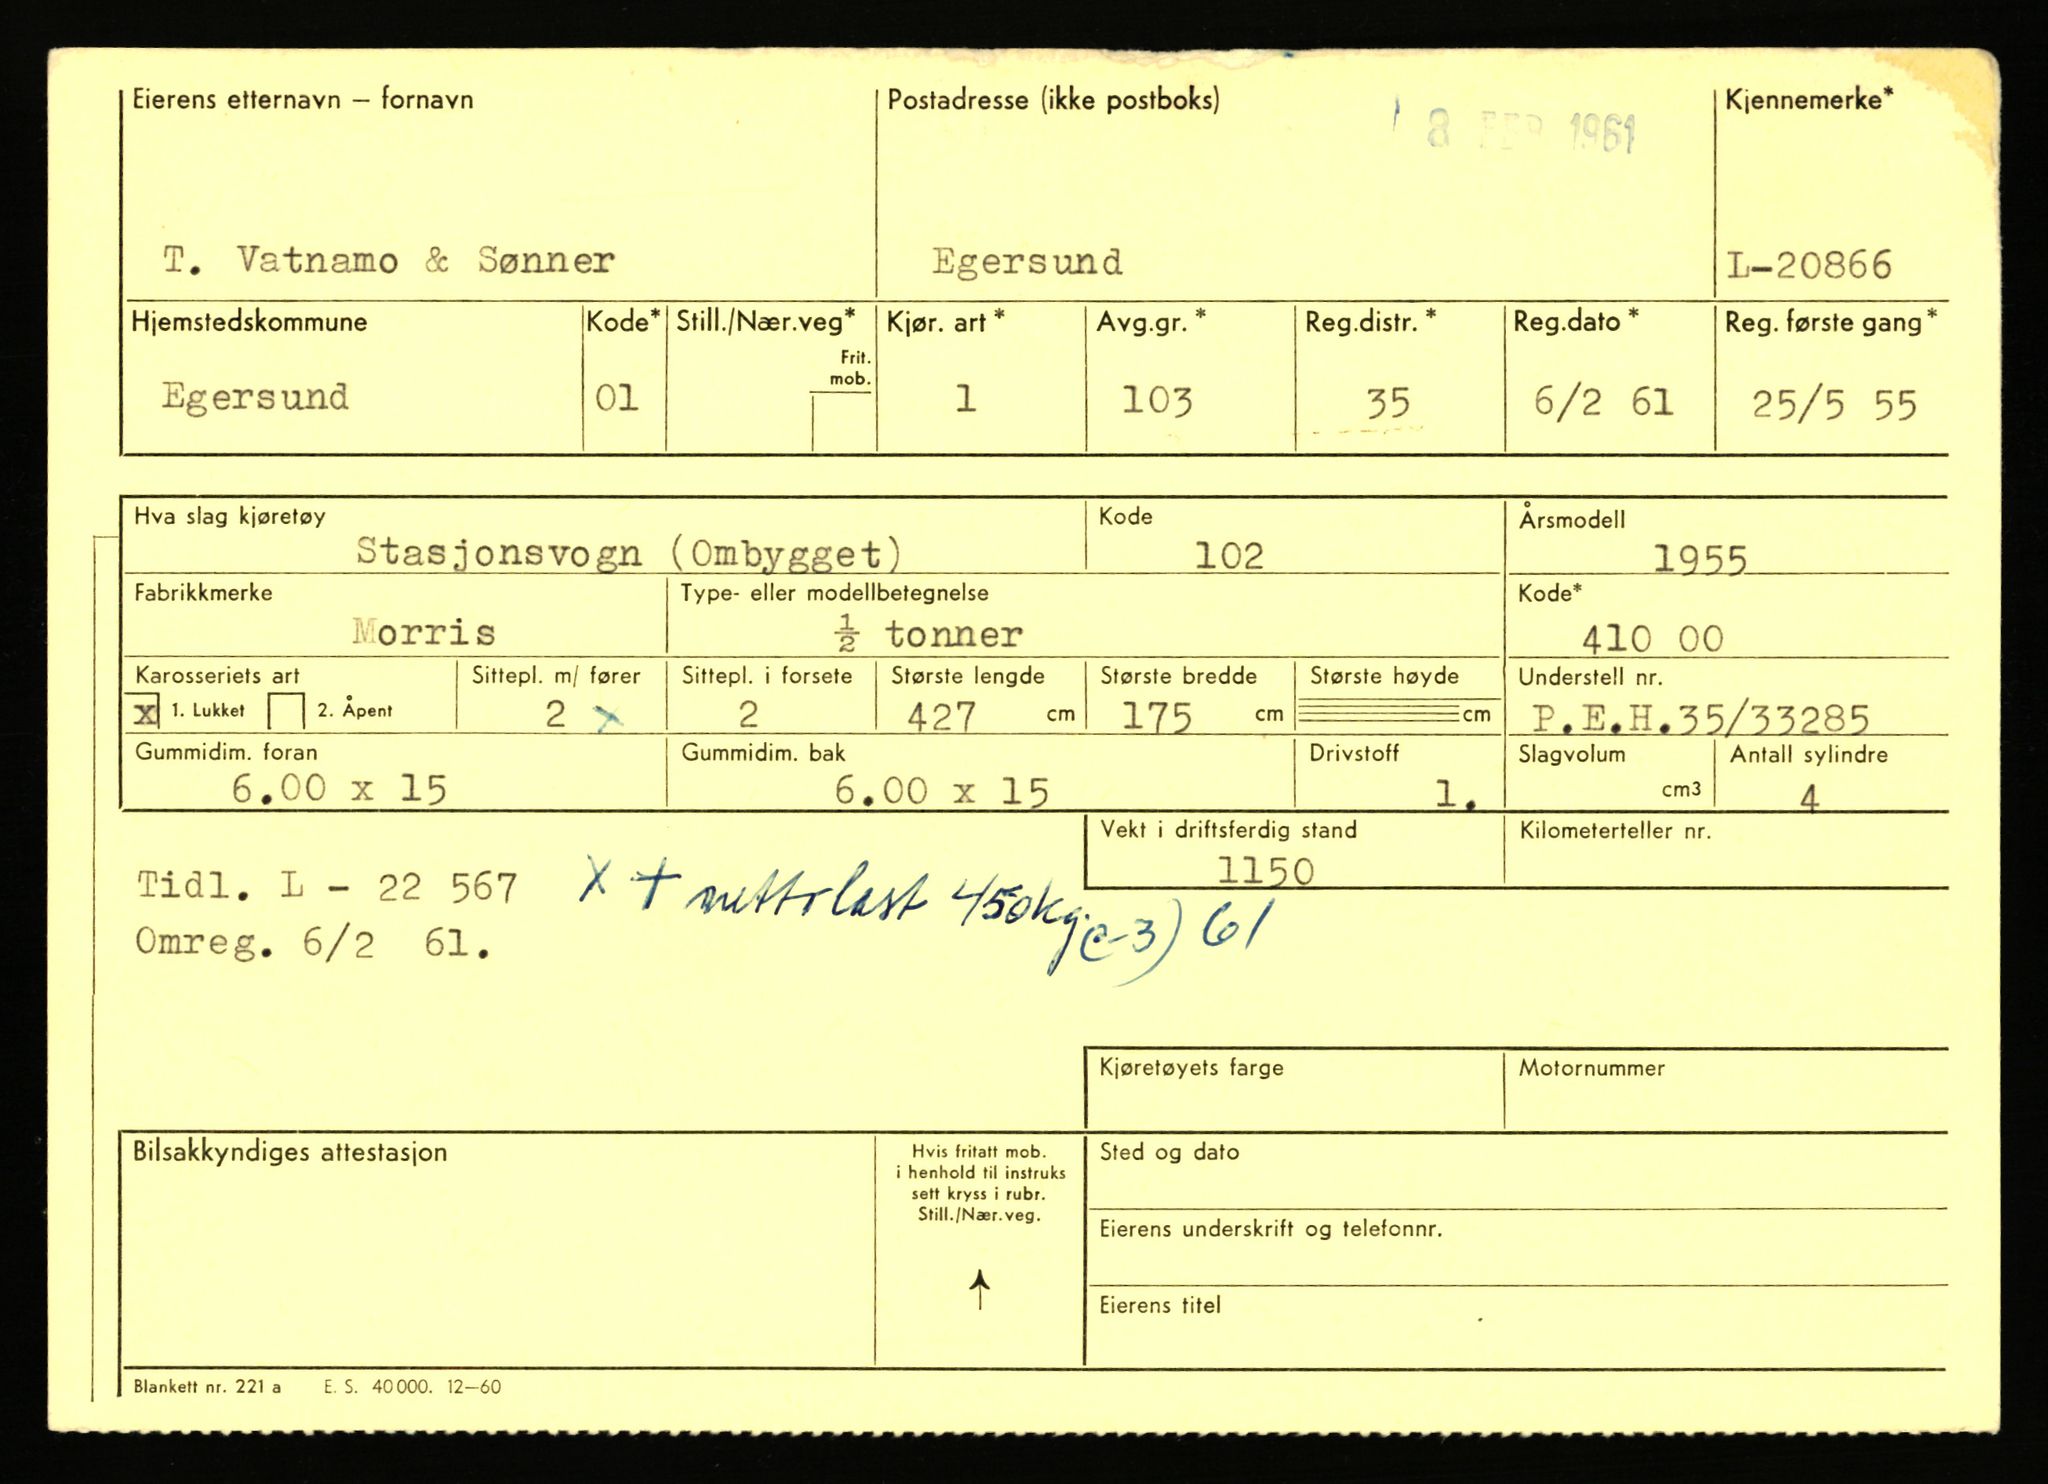 Eierens etternavn – fornavn
Postadresse (ikke postboks)
8 FEB 1961
Kjennemerke*
T. Vatnamo & Sønner
Egersund
L-20866
Hjemstedskommune
Kode*
Still./Nær.veg*
Frit.
mob.
Kjør. art *
Avg.gr. *
Reg.distr. *
Reg.dato *
Reg. første gang*
Egersund
01
1
103
35
6/2 61
25/5 55
Hva slag kjøretøy
Kode
Årsmodell
Stasjonsvogn (Ombygget)
102
1955
Fabrikkmerke
Type- eller modellbetegnelse
Kode*
Morris
½ tonner
410 00
Karosseriets art
Sittepl. m/ fører
Sittepl. i forsete
Største lengde
Største bredde
Største høyde
Understell nr.
x 1. Lukket 2. Åpent
2 x
2
427 cm
175 cm
cm
P.E.H.35/33285
Gummidim. foran
Gummidim. bak
Drivstoff
Slagvolum
Antall sylindre
6.00 x 15
6.00 x 15
1.
cm3
4
Vekt i driftsferdig stand
Kilometerteller nr.
1150
Tidl. L - 22 567
x + nettolast 450kg. (2-3) 61
Omreg. 6/2 61.
Kjøretøyets farge
Motornummer
Bilsakkyndiges attestasjon
Hvis fritatt mob.
i henhold til instruks
sett kryss i rubr.
Still./Nær.veg.
Sted og dato
Eierens underskrift og telefonnr.
Eierens titel
Blankett nr. 221 a E. S. 40000. 12–60